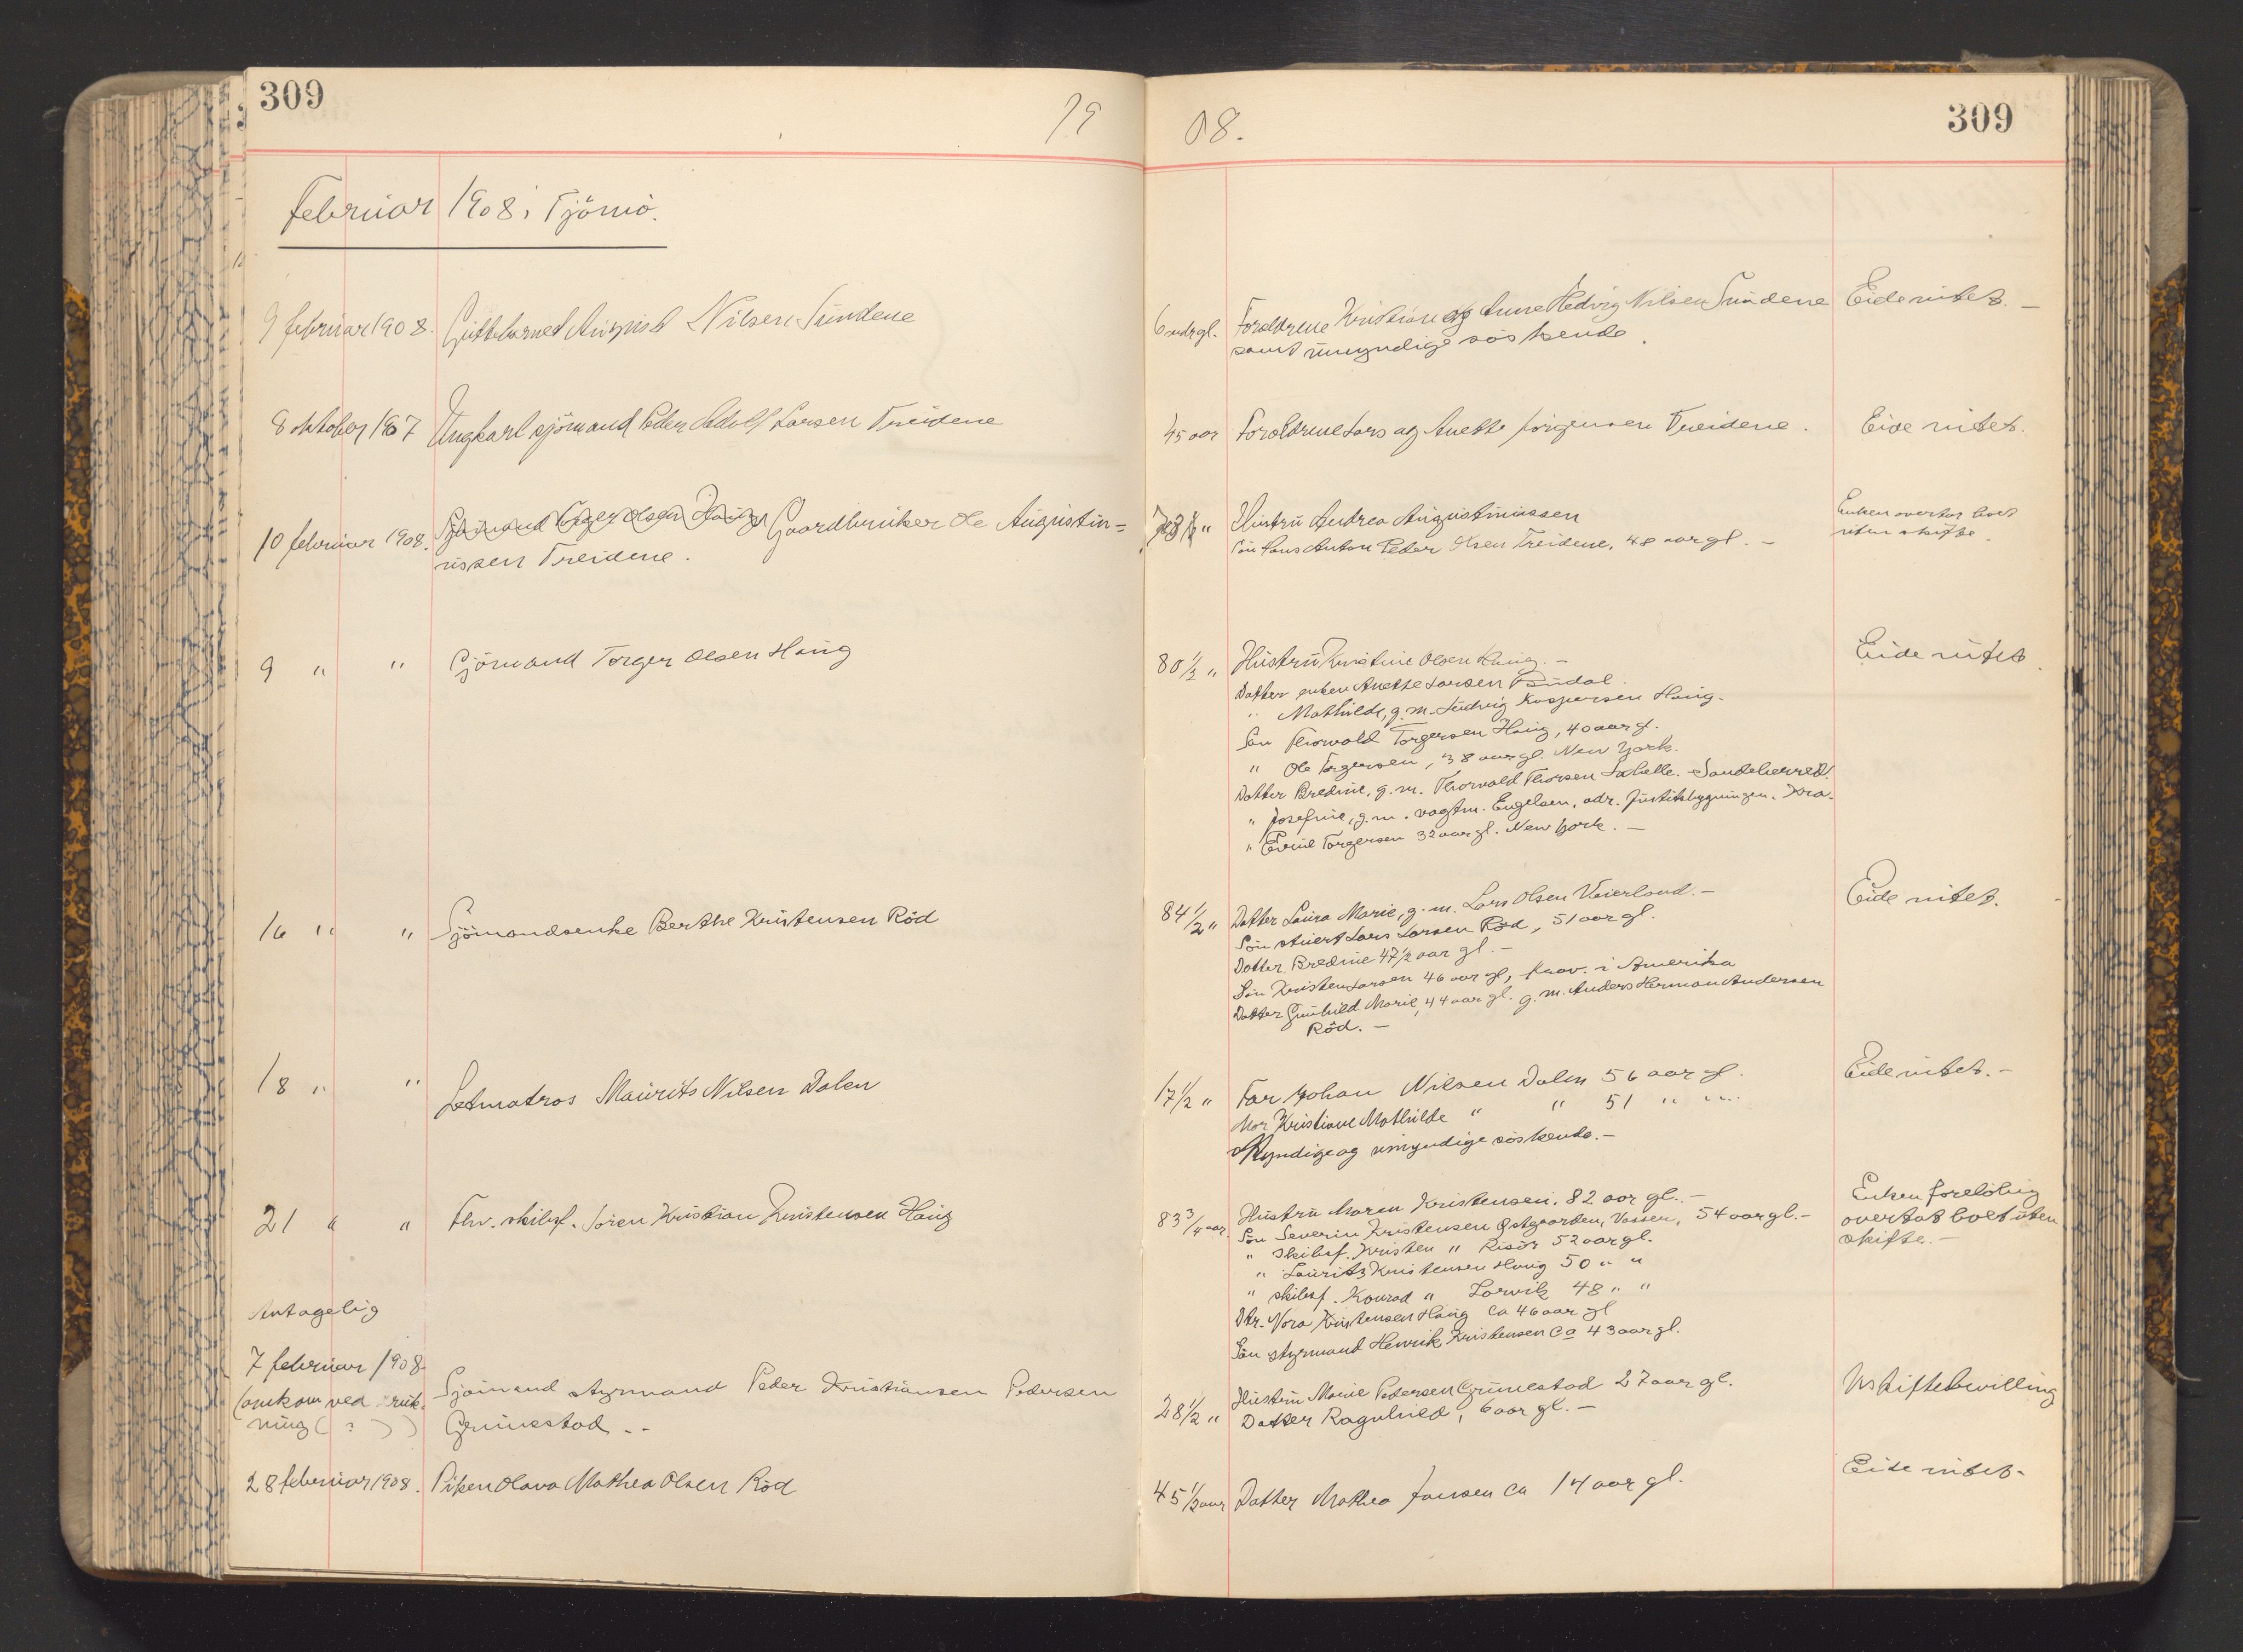 309
19
08.
309
Februar 1908 i Tjömö.
9 februar 1908. Guttebarnet August Nilsen Sundene
6 mdr gl. Forældrene Kristian og Anne Hedvig Nilsen Sundene
samt umyndige söskende.
Eide intet. –
8 oktober 1907 Ungkarl sjömand Peder Adolf Larsen Treidene
45 aar Forældrene Lars og Anette Jörgensen Treidene.
Eide intet.
10 februar 1908. Sjömand Torger Olsen Haug Gaardbruker Ole Augustin=
ussen Treidene.
" Hustru Andrea Augustinussen
Sön Hans Anton Peder Olsen Treidene, 48 aar gl. –
Enken overtar boet
uten skifte.
9 " " Sjömand Torger Olsen Haug
80 1/2 " Hustru Kristine Olsen Haug. –
Datter enken Anette Larsen Budal.
" Mathilde, g. m. Ludvig Kaspersen Haug.
Sön Thorvald Torgersen Haug, 40 aar gl.
" Ole Torgersen, 38 aar gl. New York.
Datter Bredine, g. m. Thorvald Thorsen Sandeherred.
" Josefine, g. m. vagtm. Engelsen, adr. Justitsbygningen. Kra.
" Emil Torgersen 32 aar gl. New York. –
Eide intet.
16 " " Sjömandsenke Berthe Kristensen Röd
84 1/2 " Datter Laura Marie, g. m. Lars Olsen Veierland. –
Sön Lars Larsen Röd, 51 aar gl.
Datter Bredine 47 1/2 aar gl. –
Sön Kristen Larsen 46 aar gl, i Amerika
Datter Gunhild Marie, 44 aar gl. g. m. Anders Herman Andersen
Röd. –
Eide intet.
18 " " Letmatros Maurits Nilsen Dalen
17 1/2 " Far Johan Nilsen Dalen 56 aar gl.
Mor Kristiane Mathilde " " 51 " "
Myndige og umyndige söskende. –
Eide intet. –
21 " " Fhv. skibsf. Sören Kristian Kristensen Haug
83 3/4 aar. Hustru Maren Kristensen, 82 aar gl. –
Sön Severin Kristensen Østgaarden, Vassen, 54 aar gl. –
" skibsf. Kristen " Risör 52 aar gl.
" Lauritz Kristensen Haug 50 " "
" skibsf. Konrad " Larvik 48 " "
Dtr. Nora Kristensen Haug ca 46 aar gl
Sön styrmand Henrik Kristensen ca 43 aar gl.
Enken foreløbig
overtat boet uten
skifte. –
Antagelig
7 februar 1908
(omkom ved druk-
ning (?)) Sjömand styrmand Peder Kristiansen Pedersen
Grimestad. –
28 1/2 " Hustru Marie Pedersen Grimestad 27 aar gl.
Datter Ragnhild, 6 aar gl. –
Uskiftebevilling
28 februar 1908. Piken Olava Mathea Olsen Röd
45 1/2 aar Datter Mathea Jansen ca 14 aar gl.
Eide intet.